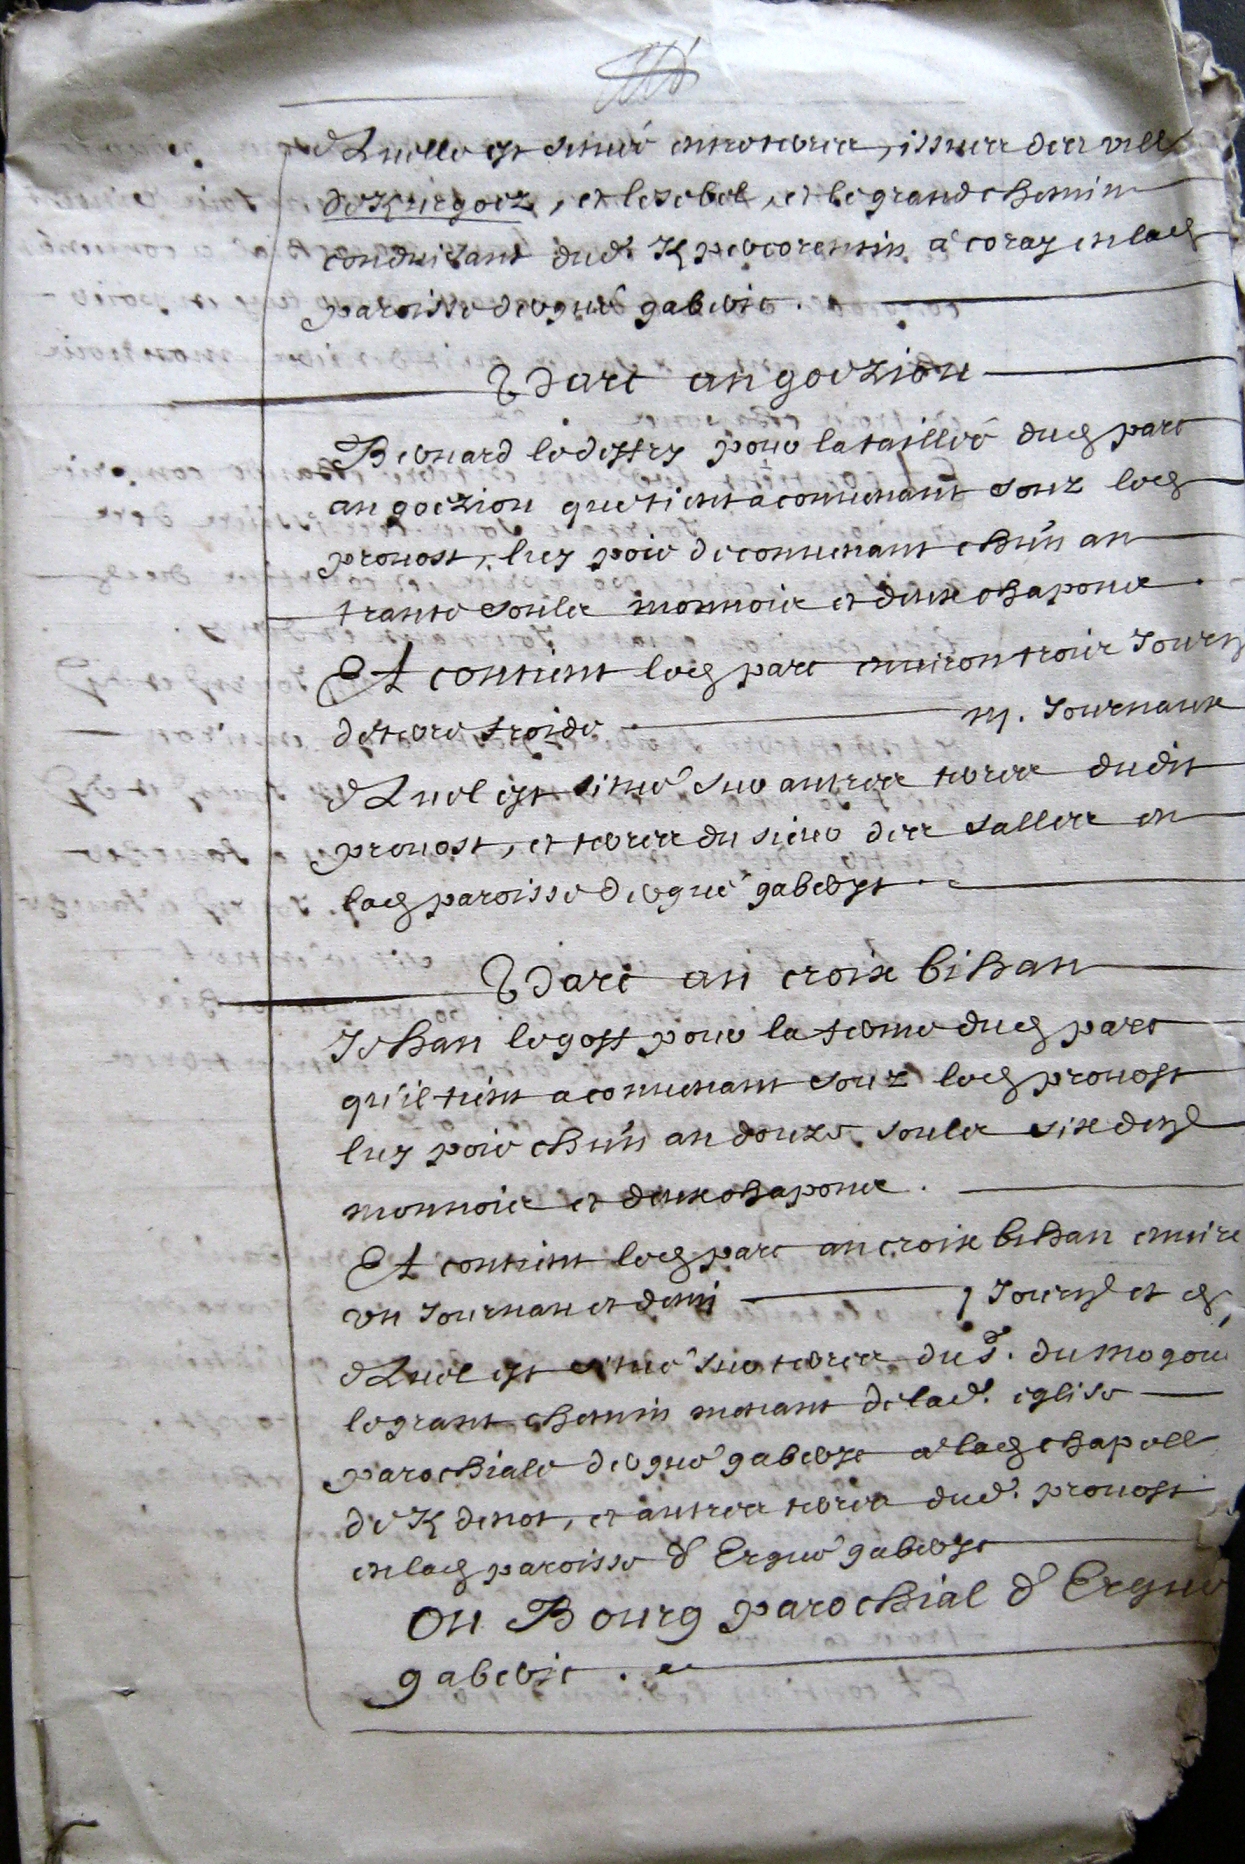 Quelle est situé entre terres, issues des vill
de K/uegoez, et lesebel, et le grand chemin
conduisant dud. K/percorentin a coray en lad
paroisse dergué gaberic.
Parc an goezion
Bernard le destry pour la taillée dud parc
an goezion que tient a convenant souz led
provost, luy poie de convenant chu'n an
trante soulz monnoie et deux chapons.
Et contient led parc environ trois Journ
de terre froide. iij. Journaux
Quel est situé sur autres terres dudit
provost, et terres du sieur des salles en
lad paroisse dergué gaberyt.
Parc an croix bihan
Jehan le goff pour la ferme dud parc
qu'il tient a convenant souz led provost
luy poie chu'n an douze soulz six den
monnoie et deux chapons.
Et contient led parc an croix bihan envir
un Journau et demi j Journ et d
Quel est situé sur terres du Sr. du mogou
le grant chemin menant de lad. eglise
parochiale dergué gaberyc a lad chapell
de K/denot, et autres terres dud. provost
en lad paroisse d'Ergué gaberyc
Ou Bourg parochial d'Ergué
gaberic.